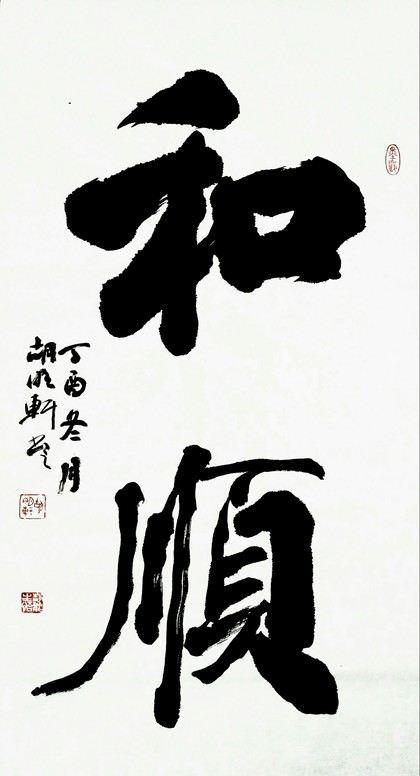 和順
丁酉冬月
胡明軒書